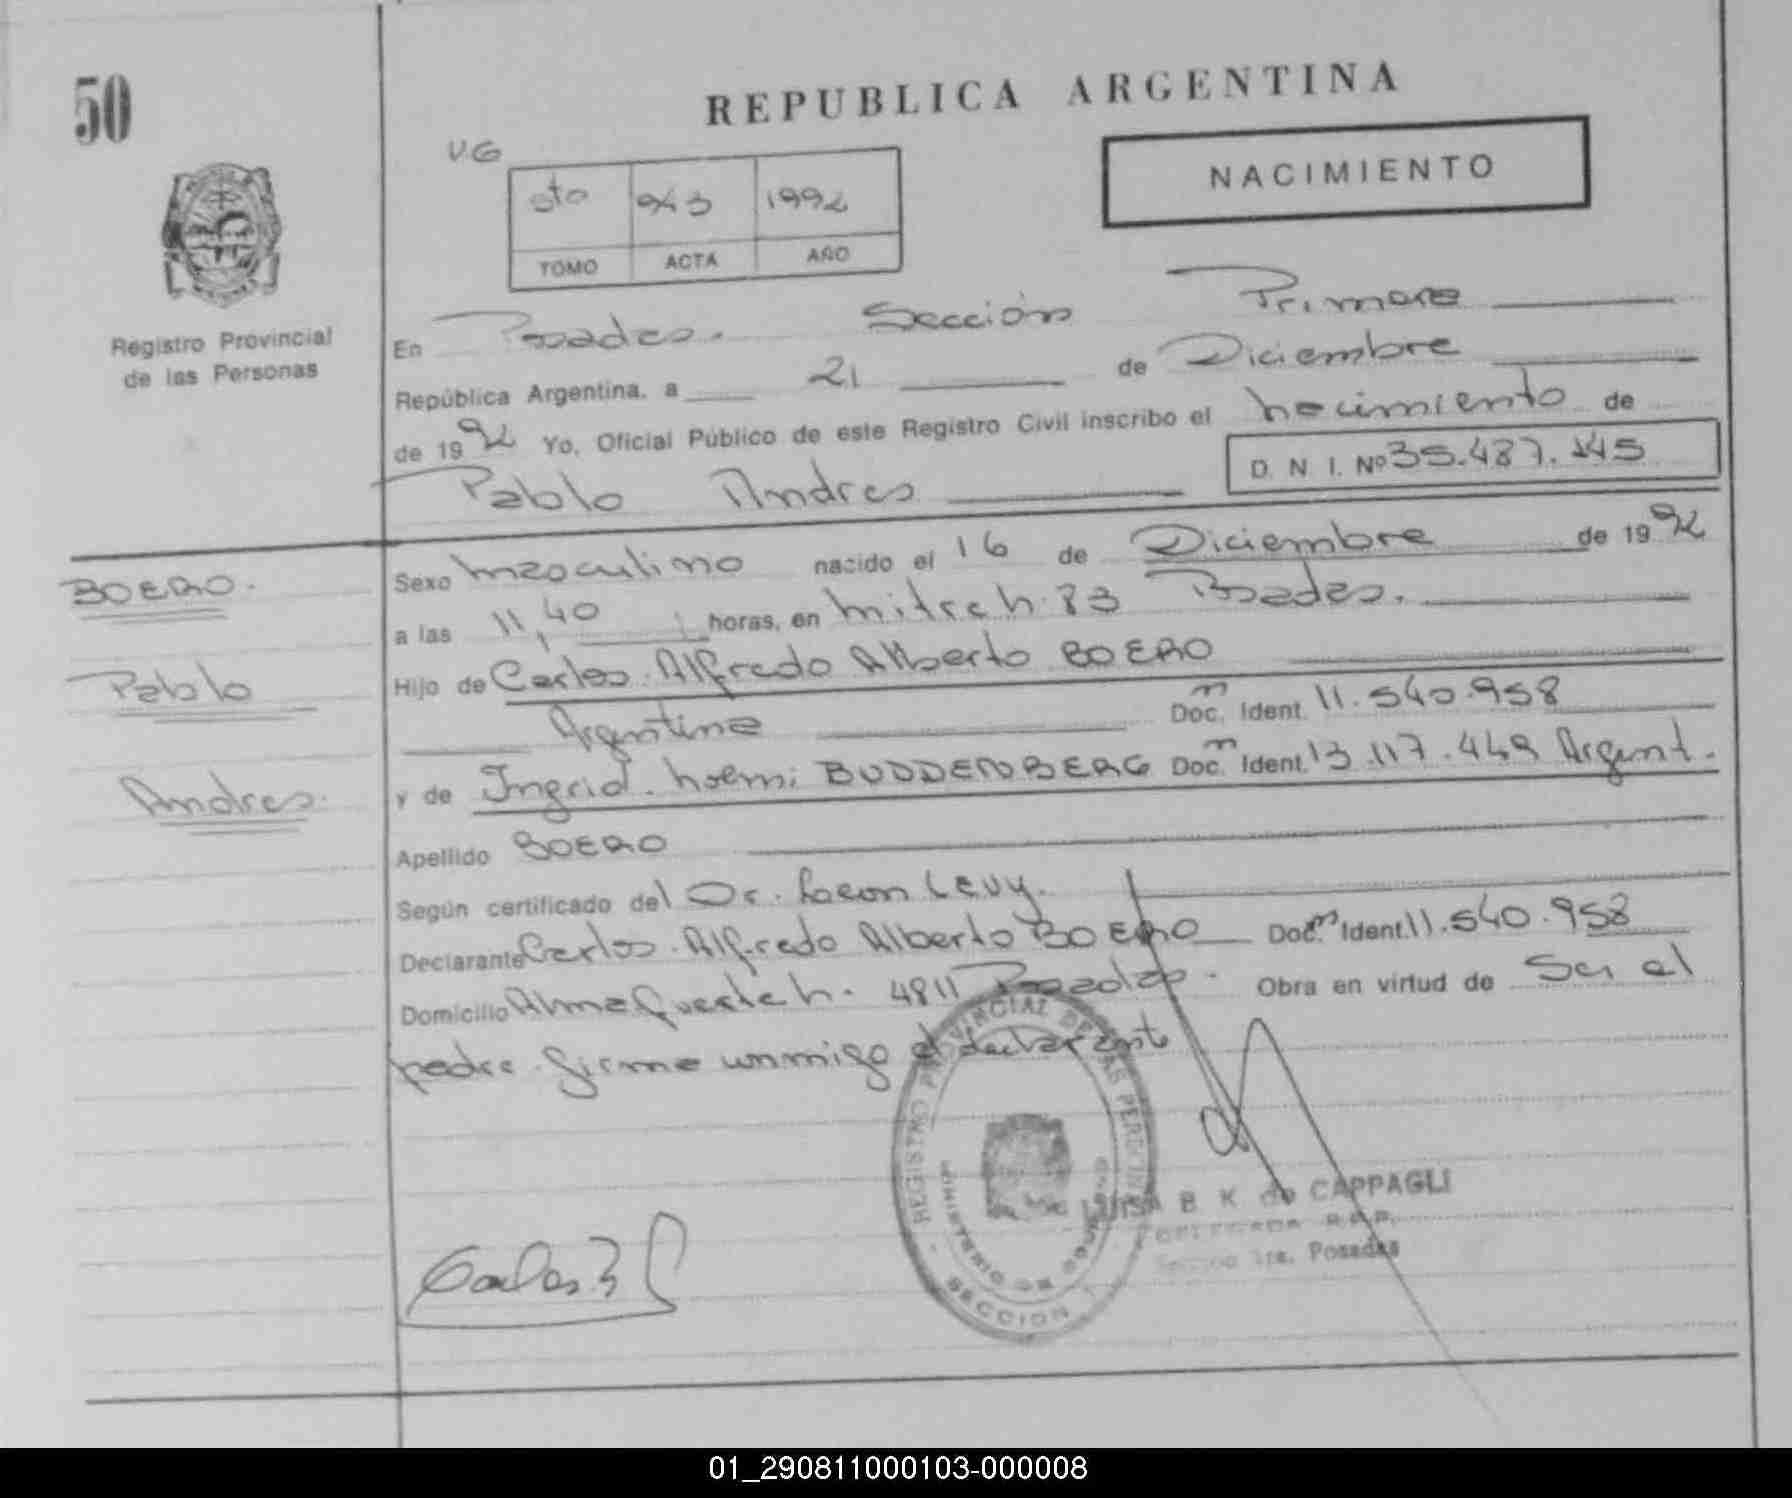 50
REPUBLICA ARGENTINA
V.G
5to 943 1992
TOMO ACTA AÑO
NACIMIENTO
Registro Provincial
de las Personas
En Posadas. Sección Primera
República Argentina, a 21 de Diciembre
de 1992 Yo, Oficial Público de este Registro Civil inscribo el nacimiento de
Pablo Andres D. N. I. Nº 35.487.145
BOERO.
Pablo
Andres.
Sexo masculino nacido el 16 de Diciembre de 1992
a las 11,40 horas, en Mitre h. 83 Posadas.
Hijo de Carlos Alfredo Alberto BOERO
Argentina Doc. Ident. 11.540.958
y de Ingrid Noemi BUDDENBERG Doc. Ident. 13.117.449 Argent.
Apellido BOERO
Según certificado del Dr. Leon Levy.
Declarante Carlos Alfredo Alberto BOERO Doc. Ident. 11.540.958
Domicilio Almafuerte h. 4811 Posadas. Obra en virtud de Ser el
padre firma conmigo el declarante
REGISTRO PROVINCIAL DE LAS PERSONAS
MINISTERIO DE GOBIERNO
SECCION
LUISA B K de CAPPAGLI
DELEGADA R.P.P.
Seccion 1ra. Posadas
01_290811000103-000008